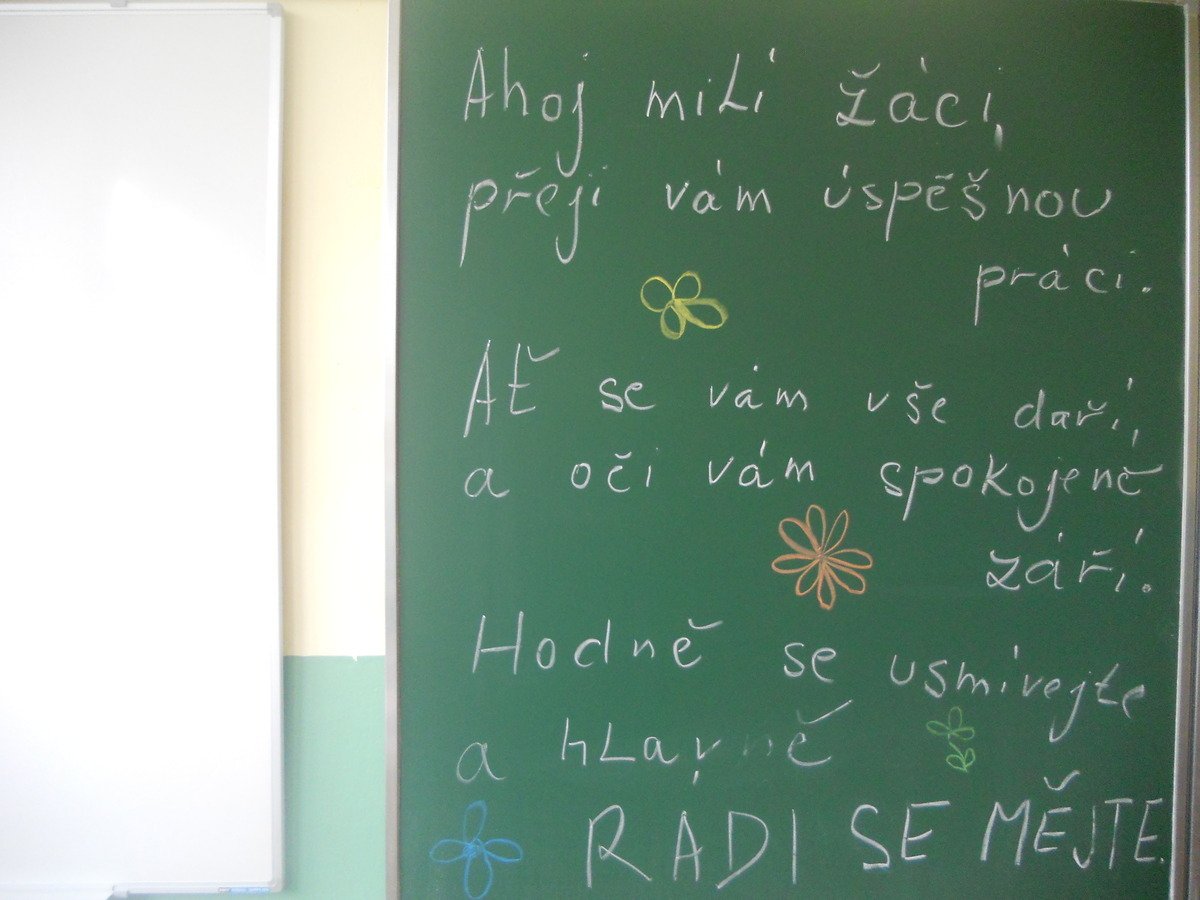 Ahoj milí žáci,
přeji vám úspěšnou
práci.
Ať se vám vše daří,
a oči vám spokojeně
září.
Hodně se usmívejte
a hlavně
RADI SE MĚJTE.